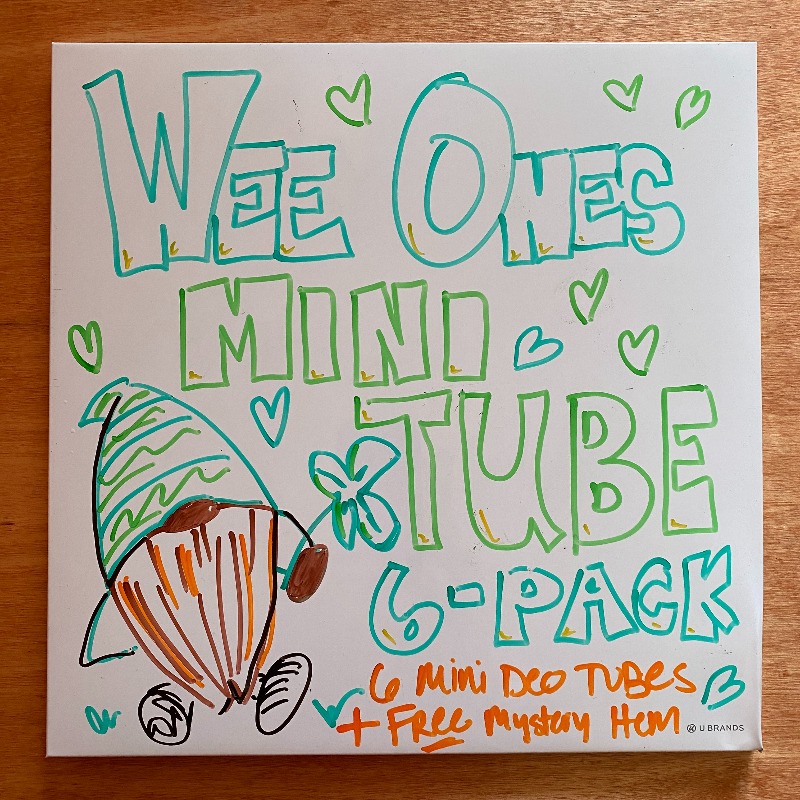 WEE ONES
MINI
TUBE
6-PACK
6 Mini Deo TUBES
+ FREE Mystery Item
U BRANDS